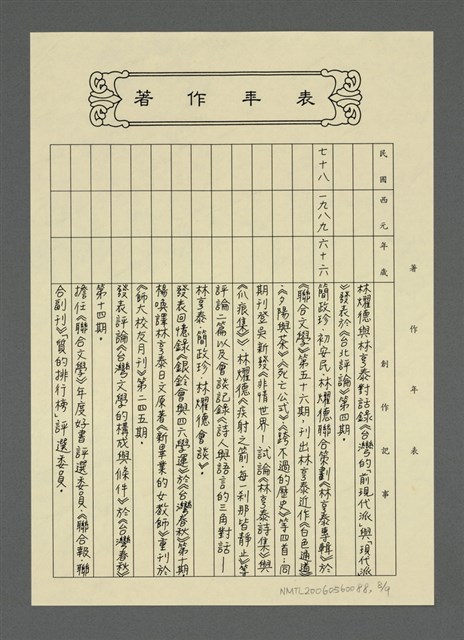 著作年表
著作年表
民國
西元
年歲
創作記事
林燿德與林亨泰對話錄《台灣的「前現代派」與「現代派」
》發表於《台北評論》第四期。
七十八 一九八九 六十六
簡政珍、初安民、林燿德聯合策劃《林亨泰專輯》於
《聯合文學》第五十六期,刊出林亨泰近作《白色通道》
、《夕陽與茶》、《死亡公式》、《跨不過的歷史》等四首;同
期刊登吳新發《非情世界—試論《林亨泰詩集》與
《爪痕集》》、林燿德《疾射之箭,每一剎那皆靜止》等
評論二篇以及會談記錄《詩人與語言的三角對話—
林亨泰、簡政珍、林燿德會談》。
發表回憶錄《銀鈴會與四六學運》於《台灣春秋》第十期
楊喚譯林亨泰日文原著《新畢業的女教師》重刊於
《師大校友月刊》第二四五期。
發表評論《台灣文學的構成與條件》於《台灣春秋》
第十四期。
擔任《聯合文學》年度好書評選委員、《聯合報、聯
合副刊》「質的排行榜」評選委員。
NMTL20060560088, 8/9